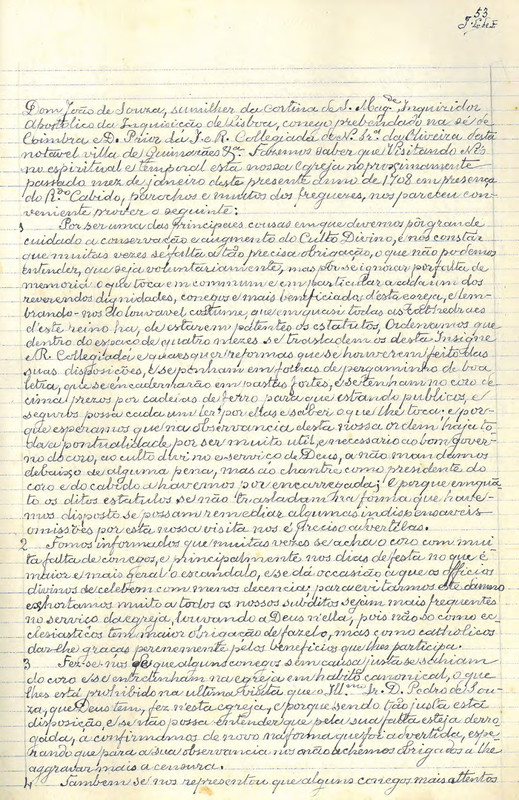 53
Dom João de Souza, sumilher da cortina de S. Mag.de Inquiridor
Apostolico da Inquisição de Lisboa, conego prebendado na sé de
Coimbra e D. Prior da I. e R. Collegiada de N. Sr.a da Oliveira desta
notavel villa de Guimarães &a. Fazemos saber que Visitando Nós
no espiritual e temporal esta nossa Egreja no proximamente
passado mez de janeiro deste presente anno de 1708 em presença
do R.do Cabido, parochos e muitos dos freguezes, nos pareceu con-
veniente prover o seguinte:
1 Por ser uma das principaes cousas em que devemos pôr grande
cuidado a conservação e augmento do Culto Divino, e nos constár
que muitas vezes se falta a tão precisa obrigação, o que não podemos
entender, que seja voluntariamente, mas por se ignorar por falta de
memoria o que toca em commum e em particular a cada um dos
reverendos dignidades, conegos e mais beneficiados d'esta egreja, e lem-
brando-nos do louvavel costume, que em quasi todas as cathedraes
d'este reino ha, de estarem patentes os estatutos, Ordenamos que
dentro do espaço de quatro mezes se trasladem os desta Insigne
e R. Collegiada e quaesquer reformas que se houverem feito das
suas disposições, e se ponham em folhas de pergaminho de boa
letra, que se encadernarão em pastas fortes, e se tenham no coro de
cima prezos por cadeias de ferro para que estando publicos, e
seguros possa cada um ler por elles e saber o que lhe toca: e por-
que esperamos que na observancia desta nossa ordem haja to-
da a pontualidade, por ser muito util, e necessario ao bom gover-
no do coro, ao culto divino e serviço de Deus, a não mandamos
debaixo de alguma pena, mas ao chantre como presidente do
coro e do cabido a havemos por encarregada; e porque emquan-
to os ditos estatutos se não trasladam na fórma que have-
mos disposto se possam remediar algumas indispensaveis
omissões por esta nossa visita nos é preciso advertil-as.
2 Fomos informados que muitas vezes se acha o coro com mui-
ta falta de conegos, e principalmente nos dias de festa no que é
maior e mais geral o escandalo, e se dá occasião a que os officios
divinos se celebem com menos decencia; para evitarmos este damno
exhortamos muito a todos os nossos subditos sejam mais frequentes
no serviço da egreja, louvando a Deus n'ella, pois não só como ec-
clesiasticos tem maior obrigação de fazel-o, mas como catholicos
dar-lhe graças perenemente pelos beneficios que lhes participa.
3 Fez-se nos que alguns conegos sem causa justa se sahiam
do coro e se entretinham na egreja em habito canonical, o que
lhes está prohibido na ultima visita que o Ill.mo Sr. D. Pedro de Sou-
za, que Deus tem, fez n'esta egreja, e porque sendo tão justa está
disposição, e se não possa entender que pela sua falta esteja derro-
gada, a confirmamos de novo na fórma que foi advertida, espe-
rando que para a sua observancia nos não achemos obrigados a lhe
aggravar mais a censura.
4 Tambem se nos representou que alguns conegos mais attentos